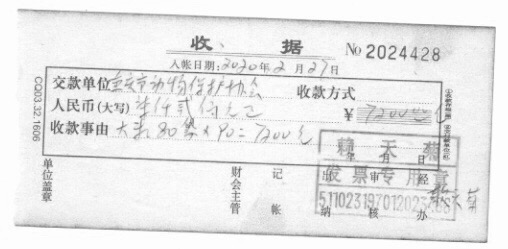 收 据 № 2024428
入帐日期：2020年2月27日
交款单位 重庆市动物保护协会 收款方式
人民币(大写) 柒仟贰佰元正 ¥ 7200.00
收款事由 大米80袋×90=7200元
年 月 日
发票专用章
单位盖章 财会主管 记帐 出纳 审核 经办
CQ03.32.1606